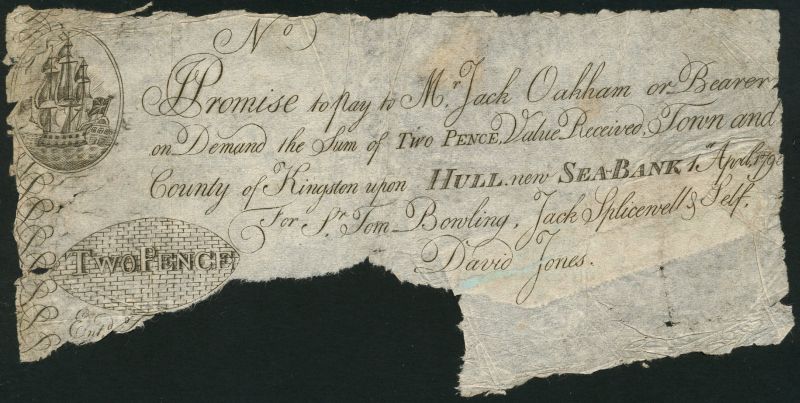 No
I Promise to pay to Mr Jack Oakham or Bearer
on Demand the Sum of Two Pence, Value Received, Town and
County of Kingston upon HULL. new SEA-BANK 1st April, 179
For Sr Tom Bowling, Jack Splicewell & Self.
David Jones.
TWO PENCE
Entd